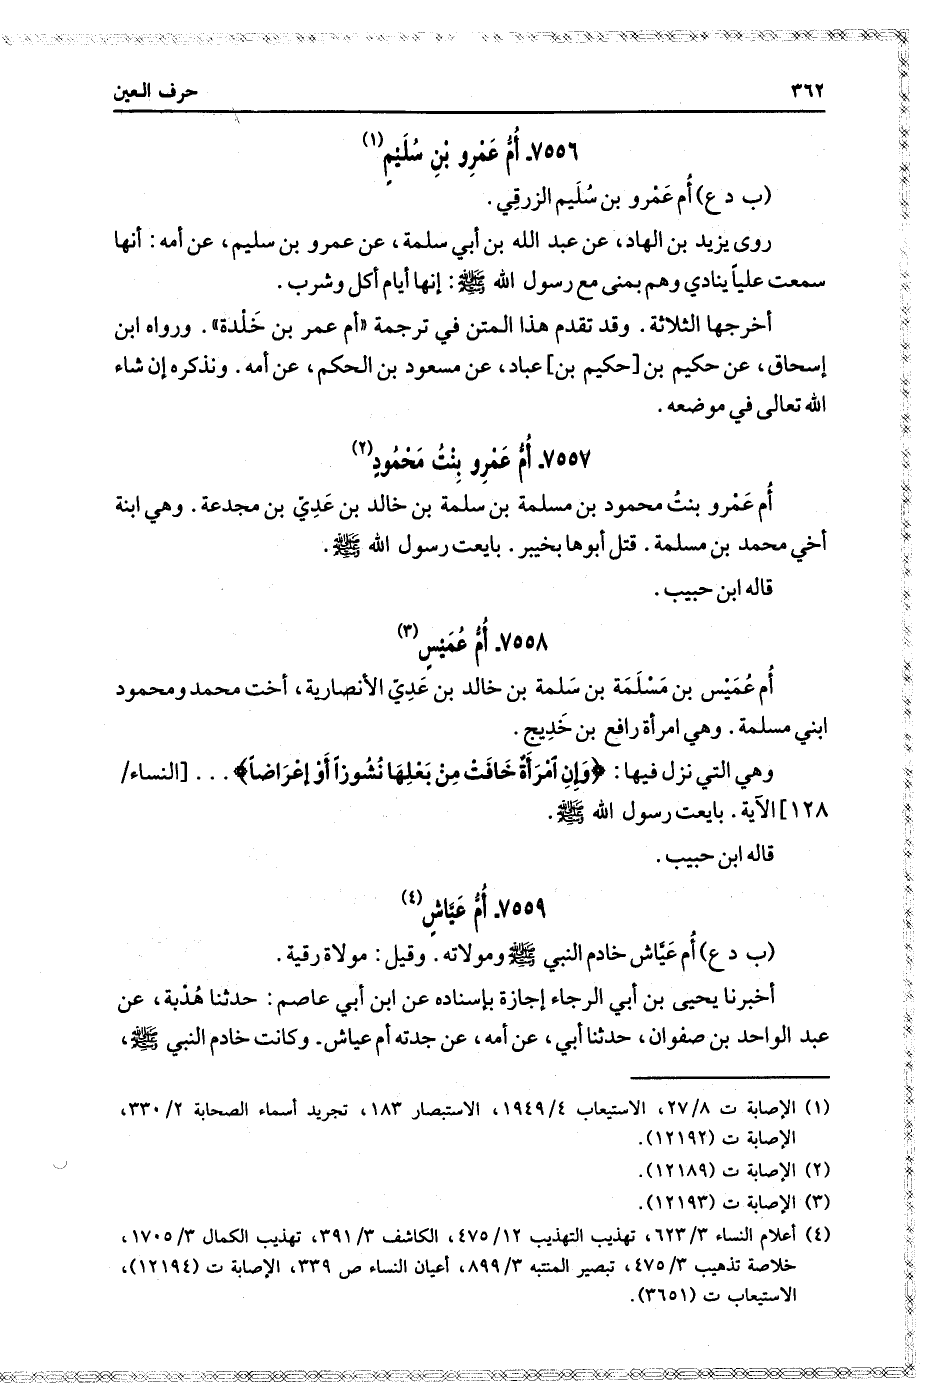 ٣٦٢ حرف العين
٧٥٥٦ـ أُمُّ عَمْرِو بْنِ سُلَيْمٍ(١)
(ب د ع) أُم عَمْرو بن سُلَيم الزرقِي.
روى يزيد بن الهاد، عن عبد الله بن أبي سلمة، عن عمرو بن سليم، عن أمه: أنها
سمعت علياً ينادي وهم بمنى مع رسول الله ﷺ: إنها أيام أكل وشرب.
أخرجها الثلاثة. وقد تقدم هذا المتن في ترجمة «أم عمر بن خَلْدة». ورواه ابن
إسحاق، عن حكيم بن [حكيم بن] عباد، عن مسعود بن الحكم، عن أمه. ونذكره إن شاء
الله تعالى في موضعه.
٧٥٥٧ـ أُمُّ عَمْرِو بِنْتُ مَحْمُودٍ(٢)
أُم عَمْرو بنتُ محمود بن مسلمة بن سلمة بن خالد بن عَدِيّ بن مجدعة. وهي ابنة
أخي محمد بن مسلمة. قتل أبوها بخيبر. بايعت رسول الله ﷺ.
قاله ابن حبيب.
٧٥٥٨ـ أُمُّ عُمَيْسٍ(٣)
أُم عُمَيْس بن مَسْلَمَة بن سَلمة بن خالد بن عَدِيّ الأنصارية، أخت محمد ومحمود
ابني مسلمة. وهي امرأة رافع بن خَدِيج.
وهي التي نزل فيها: ﴿وَإِنِ ٱمْرَأَةٌ خَافَتْ مِنْ بَعْلِهَا نُشُوزاً أَوْ إعْرَاضاً﴾... [النساء/
١٢٨] الآية. بايعت رسول الله ﷺ.
قاله ابن حبيب.
٧٥٥٩ـ أُمُّ عَيَّاشٍ(٤)
(ب د ع) أُم عَيَّاش خادم النبي ﷺ ومولاته. وقيل: مولاة رقية.
أخبرنا يحيى بن أبي الرجاء إجازة بإسناده عن ابن أبي عاصم: حدثنا هُدْبة، عن
عبد الواحد بن صفوان، حدثنا أبي، عن أمه، عن جدته أم عياش. وكانت خادم النبي ﷺ،
(١) الإصابة ت ٢٧/٨، الاستيعاب ١٩٤٩/٤، الاستبصار ١٨٣، تجريد أسماء الصحابة ٣٣٠/٢،
الإصابة ت (١٢١٩٢).
(٢) الإصابة ت (١٢١٨٩).
(٣) الإصابة ت (١٢١٩٣).
(٤) أعلام النساء ٦٢٣/٣، تهذيب التهذيب ٤٧٥/١٢، الكاشف ٣٩١/٣، تهذيب الكمال ١٧٠٥/٣،
خلاصة تذهيب ٤٧٥/٣، تبصير المنتبه ٨٩٩/٣، أعيان النساء ص ٣٣٩، الإصابة ت (١٢١٩٤)،
الاستيعاب ت (٣٦٥١).